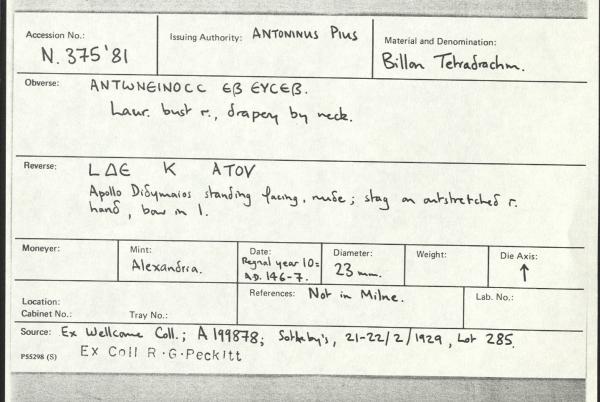 Accession No.:
N. 375'81
Issuing Authority: ANTONINUS PIUS
Material and Denomination:
Billon Tetradrachm.
Obverse: ANTWNEINOCC Eβ EYCEβ.
Laur. bust r., drapery by neck.
Reverse: L ΔЄ K ATOV
Apollo Didymaios standing facing, nude; stag on outstretched r.
hand, bow in l.
Moneyer:
Mint:
Alexandria.
Date:
Regnal year 10=
A.D. 146-7.
Diameter:
23 mm.
Weight:
Die Axis:
↑
Location:
Cabinet No.: Tray No.:
References: Not in Milne.
Lab. No.:
Source: Ex Wellcome Coll.; A 199878; Sotheby's, 21-22/2/1929, Lot 285.
P55298 (S) Ex Coll R.G.Peckitt